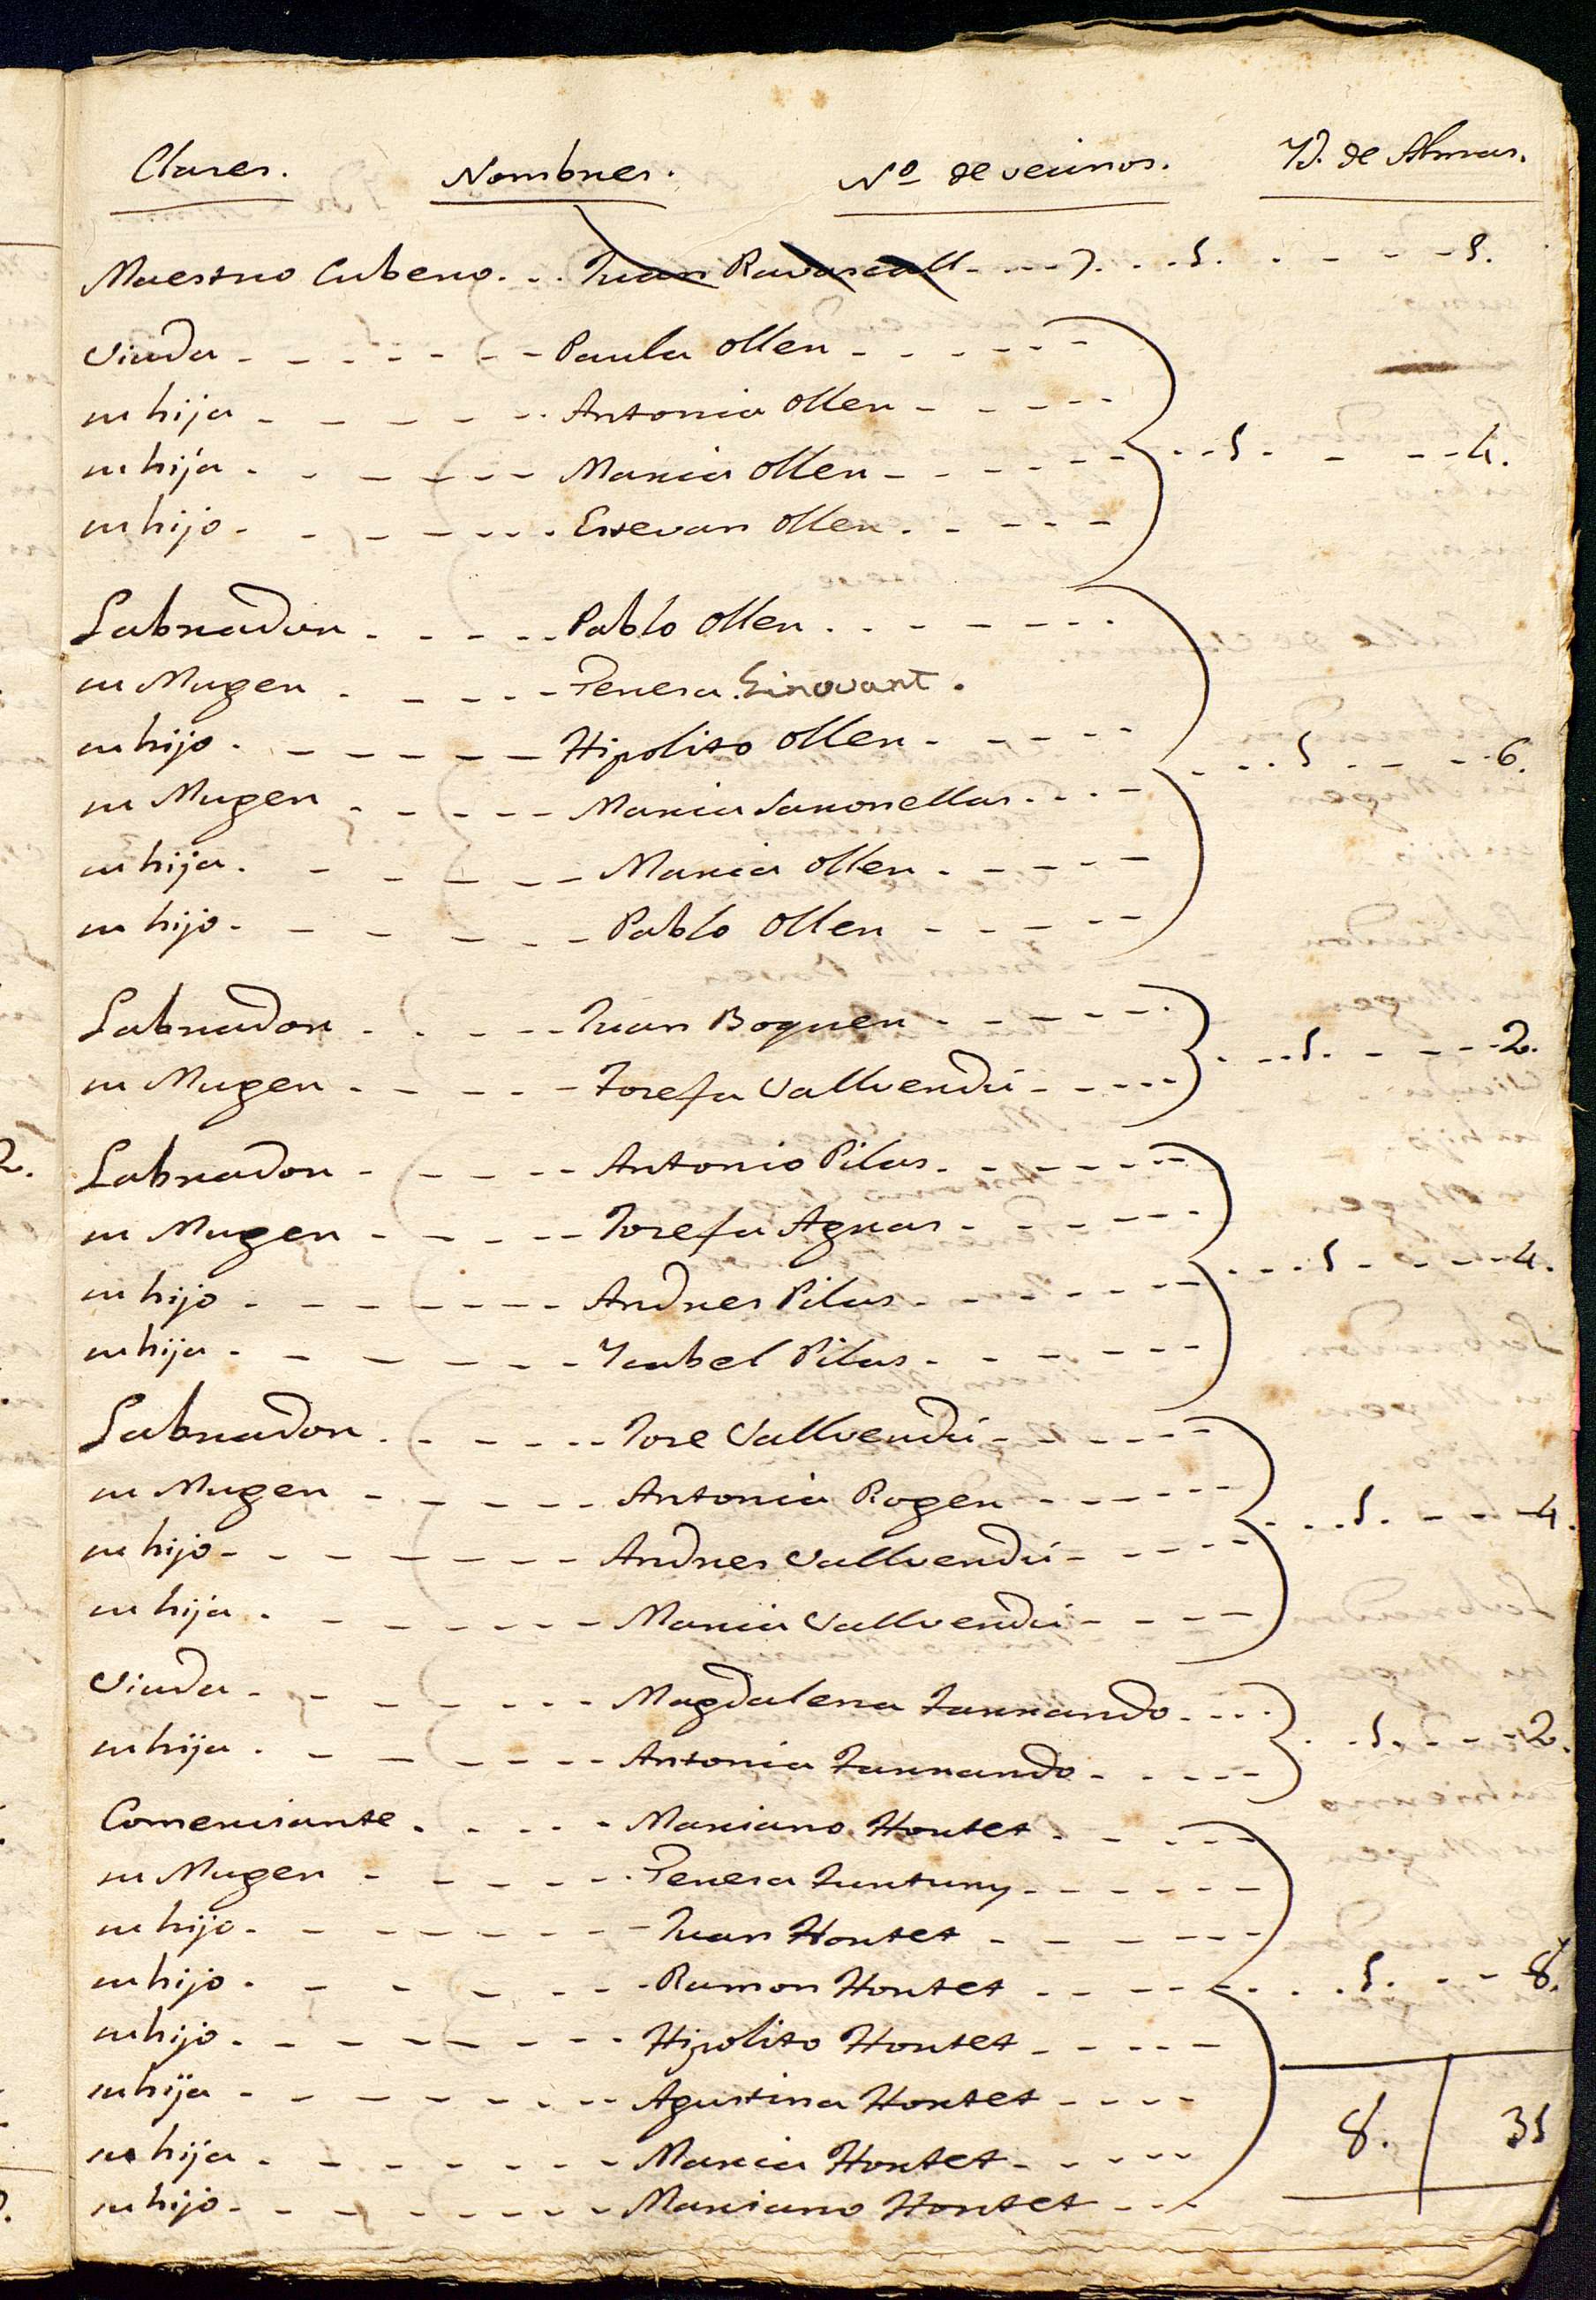 Clases. Nombres. Nº de vecinos. Yd. de Almas.
Maestro Cubero. Juan Ravascall 1. 1.
Viuda Paula Oller
su hija Antonia Oller
su hija Maria Oller 1. 4.
su hijo Estevan Oller
Labrador Pablo Oller
su Muger Teresa Sirovant.
su hijo Hipolito Oller 1. 6.
su Muger Maria Saxonellas
su hija Maria Oller
su hijo Pablo Oller
Labrador Juan Boquer 1. 2.
su Muger Josefa Vallverdú
Labrador Antonio Pilas
su Muger Josefa Agras 1. 4.
su hijo Andres Pilas
su hija Ysabel Pilas
Labrador Jose Vallverdú
su Muger Antonia Roger 1. 4.
su hijo Andres Vallverdú
su hija Maria Vallverdú
Viuda Magdalena Jarrando 1. 2.
su hija Antonia Jarrando
Comerciante Mariano Hortet
su Muger Teresa Juntuny
su hijo Juan Hortet
su hijo Ramon Hortet 1. 8.
su hijo Hipolito Hortet
su hija Agustina Hortet
su hija Maria Hortet 8. 31
su hijo Mariano Hortet